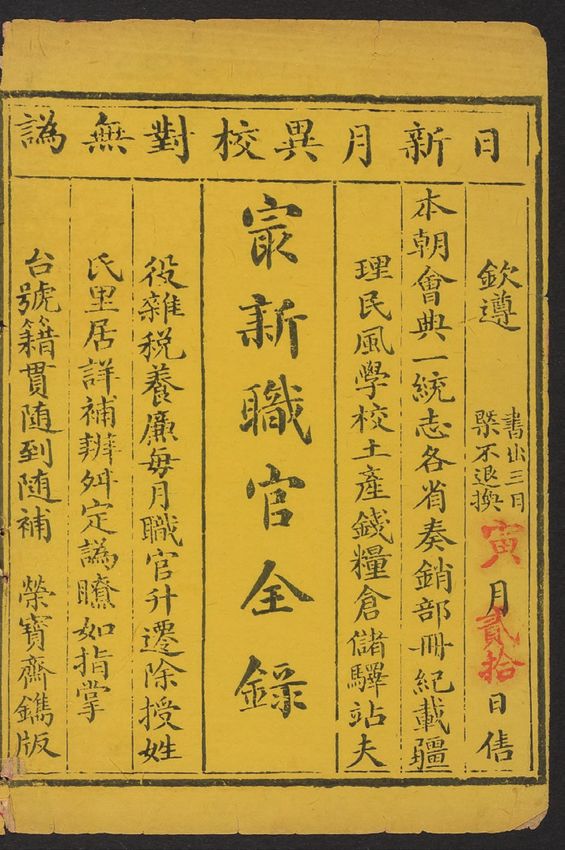 日新月異校對無譌
欽遵 書出三日槩不退換 寅月貳拾日售
本朝會典一統志各省奏銷部冊紀載疆
理民風學校土產錢糧倉儲驛站夫
㝡新職官全錄
役雜稅養廉每月職官升遷除授姓
氏里居詳補辨舛定譌瞭如指掌
台號籍貫随到随補 榮寶齋鐫版